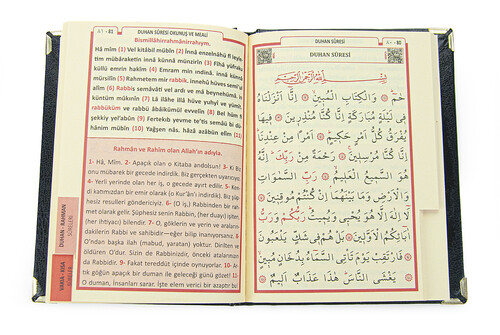 ٨١ - 81 DUHAN SÛRESİ OKUNUŞ VE MEALİ
Bismillâhirrahmânirrahıym.
Hâ mîm (1) Vel kitâbil mübîn (2) İnnâ enzelnâhü fî leyle
tim mübâraketin innâ künnâ münzirîn (3) Fîhâ yüfraku
küllü emrin hakîm (4) Emram min ındinâ, innâ künnâ
mürsilîn (5) Rahmetem mir rabbik, innehû hüves semî'ul
alîm (6) Rabbis semâvâti vel ardı ve mâ beynehümâ, in
küntüm mûkınîn (7) Lâ ilâhe illâ hüve yuhyî ve yümît,
rabbüküm ve rabbü âbâikümül evvelîn (8) Bel hüm fî
şekkiy yel'abûn (9) Fertekıb yevme te'tis semâü bi dü
hânim mübîn (10) Yağşen nâs, hâzâ azâbün elîm (11)
Rahmân ve Rahîm olan Allah'ın adıyla.
1- Hâ, Mîm. 2- Apaçık olan o Kitaba andolsun! 3- Ki Biz
onu mübarek bir gecede indirdik. Biz gerçekten uyarıyo
4- Yerli yerinde olan her iş, o gecede ayırt edilir. 5- Ken
di katımızdan bir emir olarak (o Kur'ân'ı indirdik). Biz, şüp
hesiz resulleri göndericiyiz. 6- (O iş,) Rabbinden bir rah
met olarak gelir. Şüphesiz senin Rabbin, (her duayı) işiten,
(her ihtiyacı) bilendir. 7- O, göklerin ve yerin ve arasın
dakilerin Rabbi ve sahibidir—eğer bilip inanıyorsanız. 8-
O'ndan başka ilah (mabud, yaratan) yoktur. Dirilten ve
öldüren O'dur. Sizin de Rabbinizdir, önceki atalarınızın
da Rabbidir. 9- Fakat tereddüt içinde oynuyorlar. 10- Ar
tık göğün apaçık bir duman ile geleceği günü gözet! 11-
O duman, insanları sarar. İşte elem verici bir azaptır bu!
DUHAN - RAHMAN
SURELERİ
VAKIA - KISA
SURELER
DUHAN SÛRESİ ٨٠ - 80
DUHAN SÛRESİ
بِسْمِ اللّٰهِ الرَّحْمٰنِ الرَّحِيمِ
حٰمٓ وَالْكِتَابِ الْمُبِينِ اِنَّٓا اَنْزَلْنَاهُ
فِي لَيْلَةٍ مُبَارَكَةٍ اِنَّا كُنَّا مُنْذِرِينَ فِيهَا
يُفْرَقُ كُلُّ اَمْرٍ حَكِيمٍ اَمْرًا مِنْ عِنْدِنَا
اِنَّا كُنَّا مُرْسِلِينَ رَحْمَةً مِنْ رَبِّكَ اِنَّهُ
هُوَ السَّمِيعُ الْعَلِيمُ رَبِّ السَّمٰوَاتِ
وَالْاَرْضِ وَمَا بَيْنَهُمَا اِنْ كُنْتُمْ مُوقِنِينَ
لَٓا اِلٰهَ اِلَّا هُوَ يُحْيِي وَيُمِيتُ رَبُّكُمْ وَرَبُّ
اٰبَٓائِكُمُ الْاَوَّلِينَ بَلْ هُمْ فِي شَكٍّ يَلْعَبُونَ
فَارْتَقِبْ يَوْمَ تَأْتِي السَّمَٓاءُ بِدُخَانٍ مُبِينٍ
يَغْشَى النَّاسَ هٰذَا عَذَابٌ اَلِيمٌ